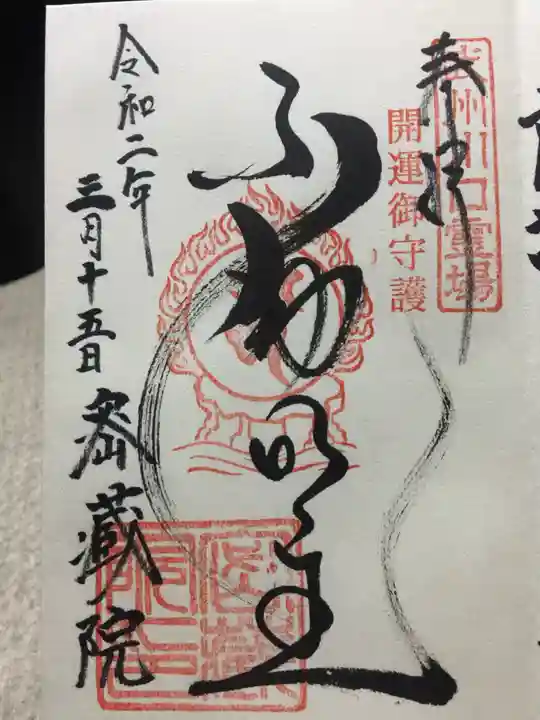 奉拝
武州川口霊場
開運御守護
不動明王
令和二年
三月十五日
密蔵院